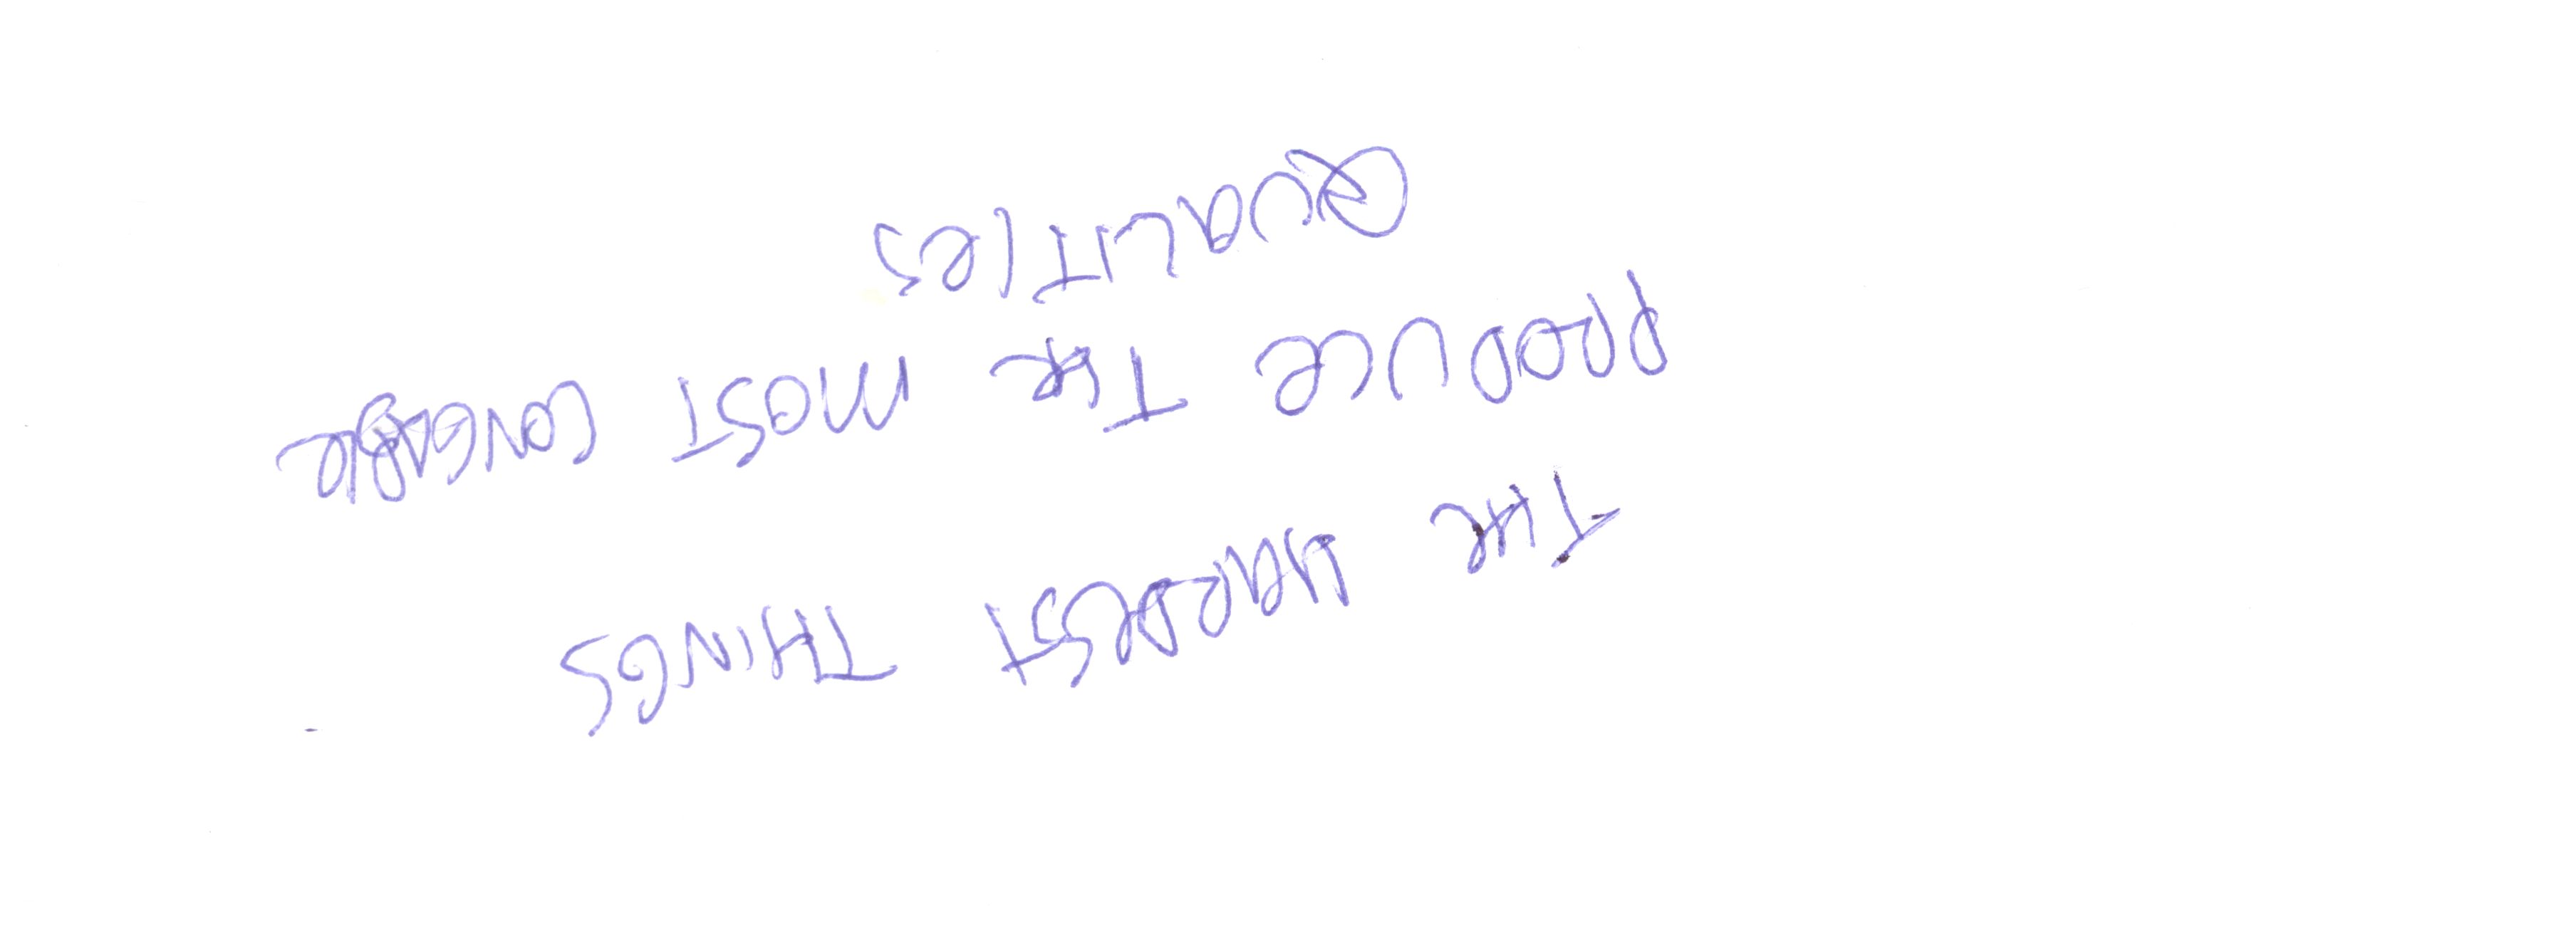 THe HARDEST THINGS
PRODUCe THe MOST
QUALITIeS